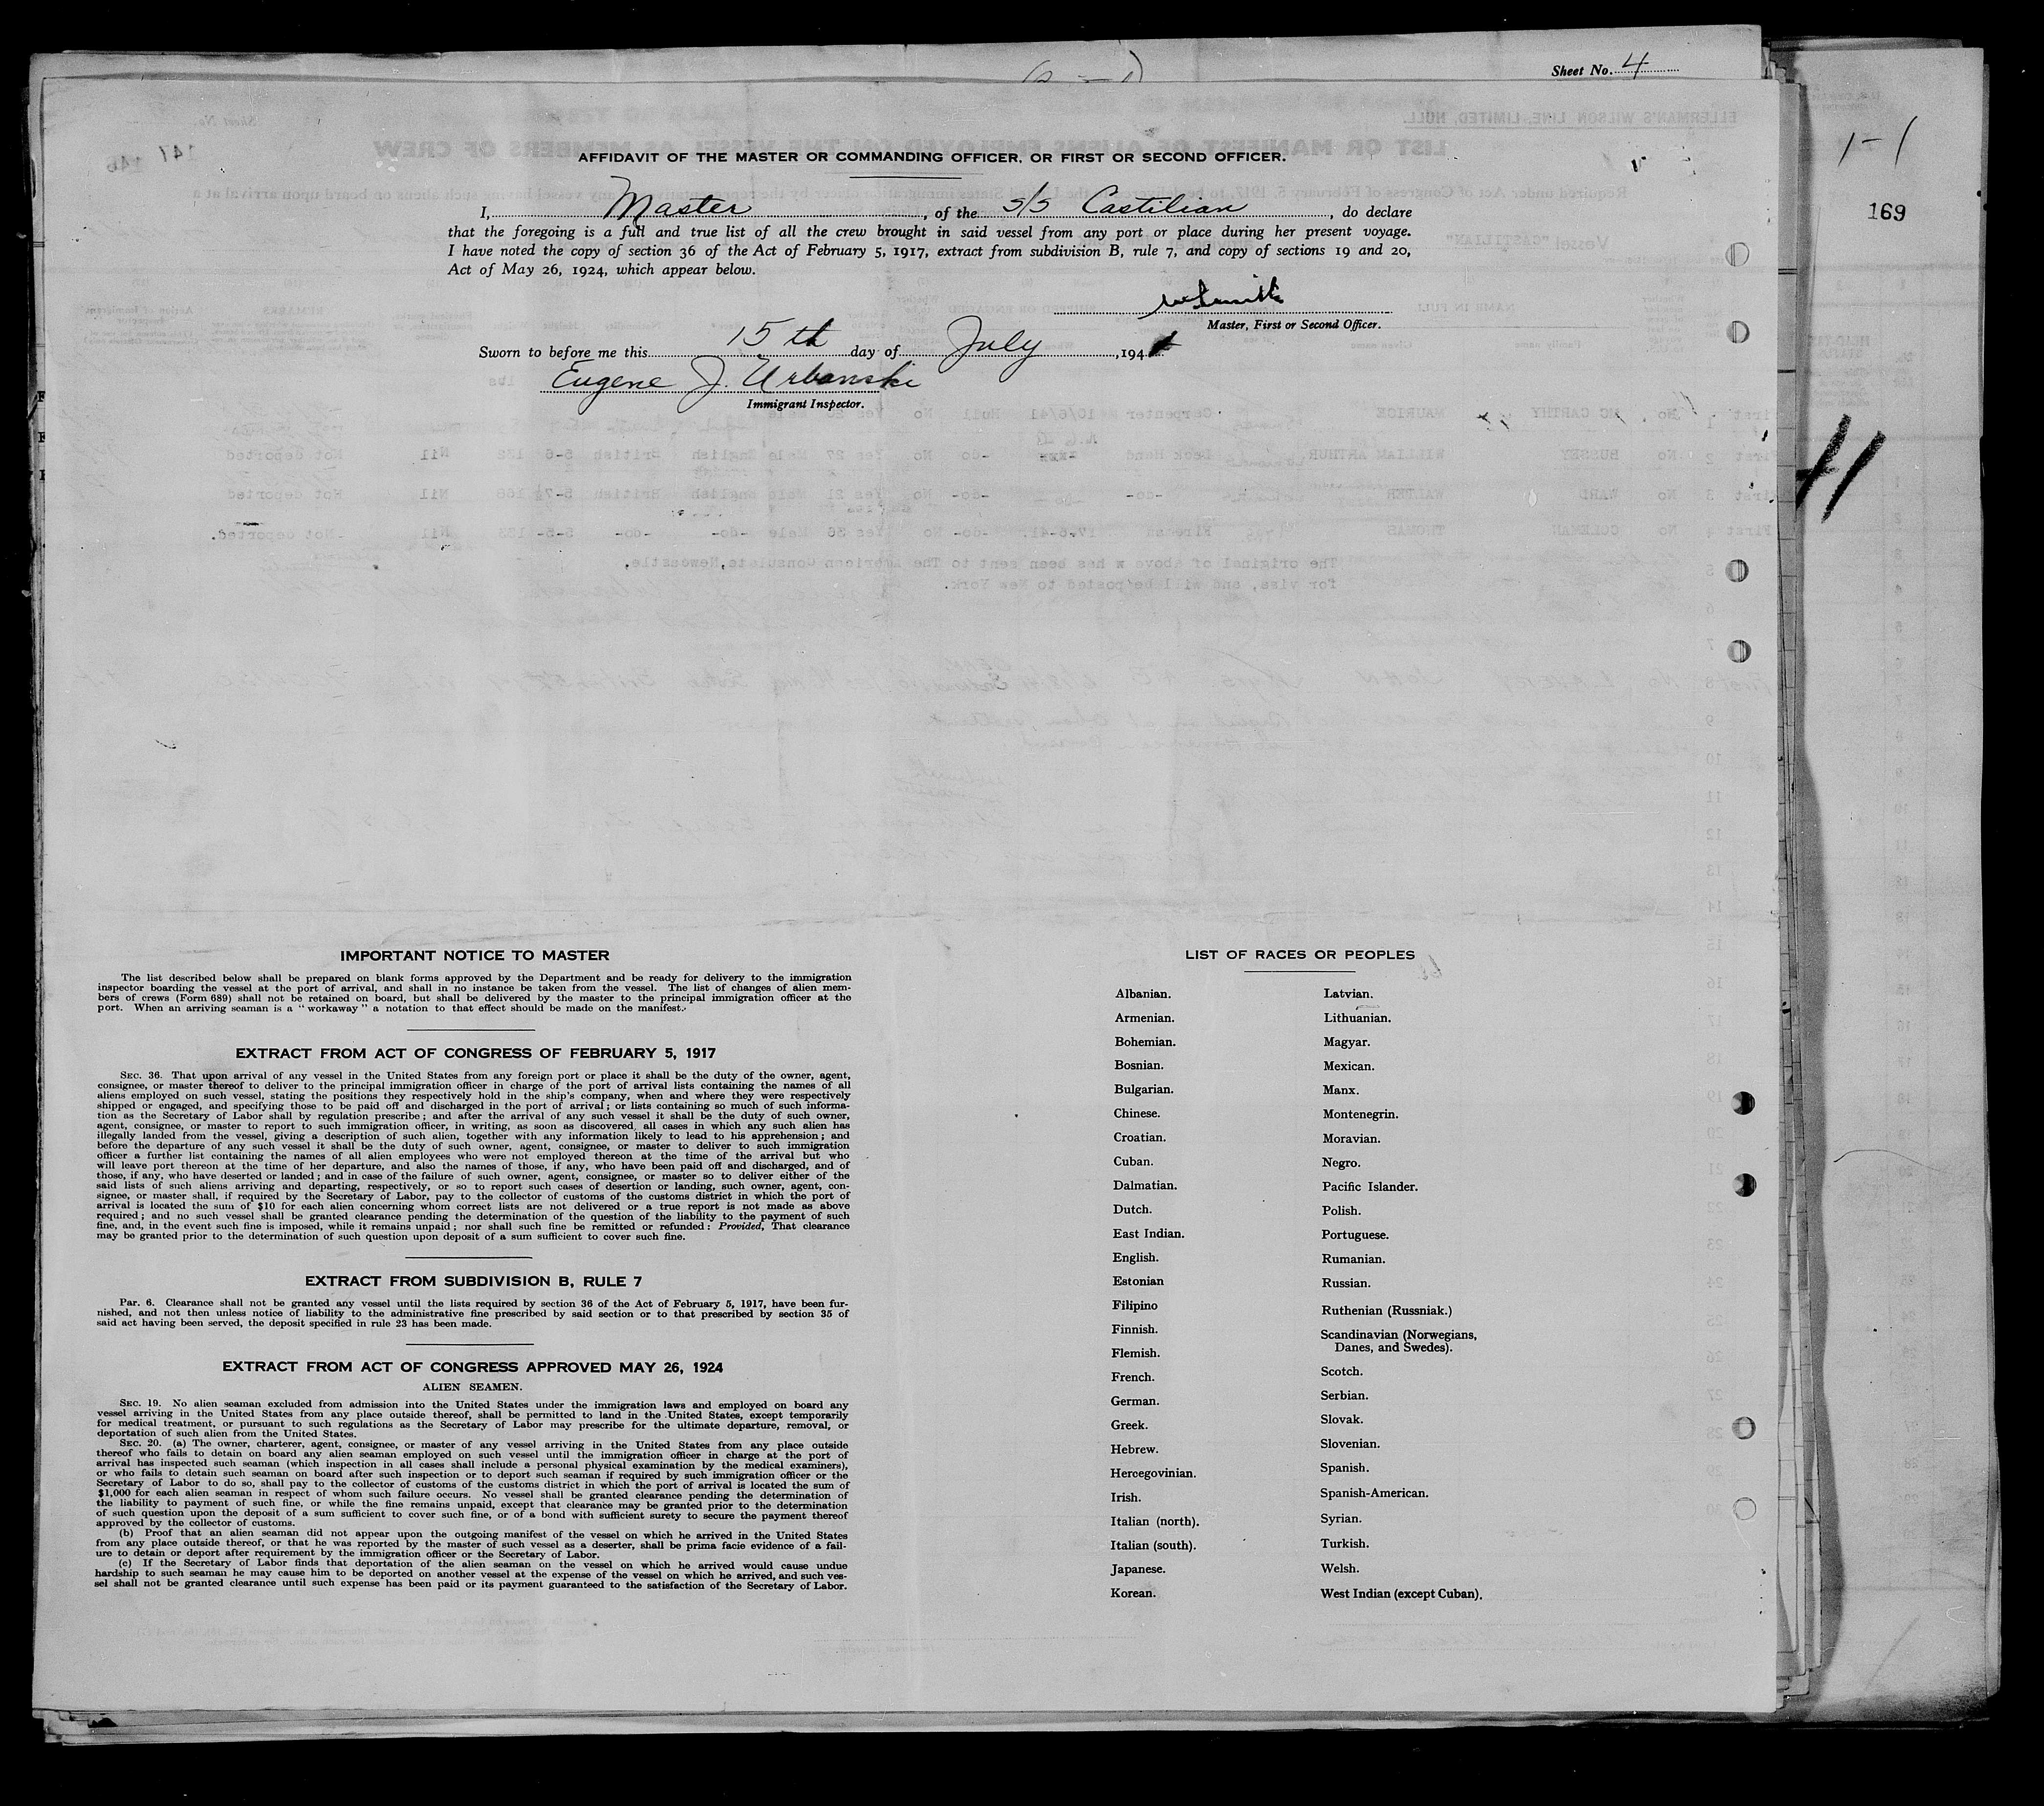 Sheet No. 4
1-1
169
AFFIDAVIT OF THE MASTER OR COMMANDING OFFICER, OR FIRST OR SECOND OFFICER.
I, Master, of the S/S Castilian, do declare
that the foregoing is a full and true list of all the crew brought in said vessel from any port or place during her present voyage.
I have noted the copy of section 36 of the Act of February 5, 1917, extract from subdivision B, rule 7, and copy of sections 19 and 20,
Act of May 26, 1924, which appear below.
Master, First or Second Officer.
Sworn to before me this 15th day of July, 194
Eugene J. Urbanski
Immigrant Inspector.
IMPORTANT NOTICE TO MASTER
The list described below shall be prepared on blank forms approved by the Department and be ready for delivery to the immigration
inspector boarding the vessel at the port of arrival, and shall in no instance be taken from the vessel. The list of changes of alien mem-
bers of crews (Form 689) shall not be retained on board, but shall be delivered by the master to the principal immigration officer at the
port. When an arriving seaman is a "workaway" a notation to that effect should be made on the manifest.
EXTRACT FROM ACT OF CONGRESS OF FEBRUARY 5, 1917
SEC. 36. That upon arrival of any vessel in the United States from any foreign port or place it shall be the duty of the owner, agent,
consignee, or master thereof to deliver to the principal immigration officer in charge of the port of arrival lists containing the names of all
aliens employed on such vessel, stating the positions they respectively hold in the ship's company, when and where they were respectively
shipped or engaged, and specifying those to be paid off and discharged in the port of arrival; or lists containing so much of such informa-
tion as the Secretary of Labor shall by regulation prescribe; and after the arrival of any such vessel it shall be the duty of such owner,
agent, consignee, or master to report to such immigration officer, in writing, as soon as discovered, all cases in which any such alien has
illegally landed from the vessel, giving a description of such alien, together with any information likely to lead to his apprehension; and
before the departure of any such vessel it shall be the duty of such owner, agent, consignee, or master to deliver to such immigration
officer a further list containing the names of all alien employees who were not employed thereon at the time of the arrival but who
will leave port thereon at the time of her departure, and also the names of those, if any, who have been paid off and discharged, and of
those, if any, who have deserted or landed; and in case of the failure of such owner, agent, consignee, or master so to deliver either of the
said lists of such aliens arriving and departing, respectively, or so to report such cases of desertion or landing, such owner, agent, con-
signee, or master shall, if required by the Secretary of Labor, pay to the collector of customs of the customs district in which the port of
arrival is located the sum of $10 for each alien concerning whom correct lists are not delivered or a true report is not made as above
required; and no such vessel shall be granted clearance pending the determination of the question of the liability to the payment of such
fine, and, in the event such fine is imposed, while it remains unpaid; nor shall such fine be remitted or refunded: Provided, That clearance
may be granted prior to the determination of such question upon deposit of a sum sufficient to cover such fine.
EXTRACT FROM SUBDIVISION B, RULE 7
Par. 6. Clearance shall not be granted any vessel until the lists required by section 36 of the Act of February 5, 1917, have been fur-
nished, and not then unless notice of liability to the administrative fine prescribed by said section or to that prescribed by section 35 of
said act having been served, the deposit specified in rule 23 has been made.
EXTRACT FROM ACT OF CONGRESS APPROVED MAY 26, 1924
ALIEN SEAMEN.
SEC. 19. No alien seaman excluded from admission into the United States under the immigration laws and employed on board any
vessel arriving in the United States from any place outside thereof, shall be permitted to land in the United States, except temporarily
for medical treatment, or pursuant to such regulations as the Secretary of Labor may prescribe for the ultimate departure, removal, or
deportation of such alien from the United States.
SEC. 20. (a) The owner, charterer, agent, consignee, or master of any vessel arriving in the United States from any place outside
thereof who fails to detain on board any alien seaman employed on such vessel until the immigration officer in charge at the port of
arrival has inspected such seaman (which inspection in all cases shall include a personal physical examination by the medical examiners),
or who fails to detain such seaman on board after such inspection or to deport such seaman if required by such immigration officer or the
Secretary of Labor to do so, shall pay to the collector of customs of the customs district in which the port of arrival is located the sum of
$1,000 for each alien seaman in respect of whom such failure occurs. No vessel shall be granted clearance pending the determination of
the liability to payment of such fine, or while the fine remains unpaid, except that clearance may be granted prior to the determination
of such question upon the deposit of a sum sufficient to cover such fine, or of a bond with sufficient surety to secure the payment thereof
approved by the collector of customs.
(b) Proof that an alien seaman did not appear upon the outgoing manifest of the vessel on which he arrived in the United States
from any place outside thereof, or that he was reported by the master of such vessel as a deserter, shall be prima facie evidence of a fail-
ure to detain or deport after requirement by the immigration officer or the Secretary of Labor.
(c) If the Secretary of Labor finds that deportation of the alien seaman on the vessel on which he arrived would cause undue
hardship to such seaman he may cause him to be deported on another vessel at the expense of the vessel on which he arrived, and such ves-
sel shall not be granted clearance until such expense has been paid or its payment guaranteed to the satisfaction of the Secretary of Labor.
LIST OF RACES OR PEOPLES
Albanian.
Armenian.
Bohemian.
Bosnian.
Bulgarian.
Chinese.
Croatian.
Cuban.
Dalmatian.
Dutch.
East Indian.
English.
Estonian
Filipino
Finnish.
Flemish.
French.
German.
Greek.
Hebrew.
Hercegovinian.
Irish.
Italian (north).
Italian (south).
Japanese.
Korean.
Latvian.
Lithuanian.
Magyar.
Mexican.
Manx.
Montenegrin.
Moravian.
Negro.
Pacific Islander.
Polish.
Portuguese.
Rumanian.
Russian.
Ruthenian (Russniak.)
Scandinavian (Norwegians,
Danes, and Swedes).
Scotch.
Serbian.
Slovak.
Slovenian.
Spanish.
Spanish-American.
Syrian.
Turkish.
Welsh.
West Indian (except Cuban).